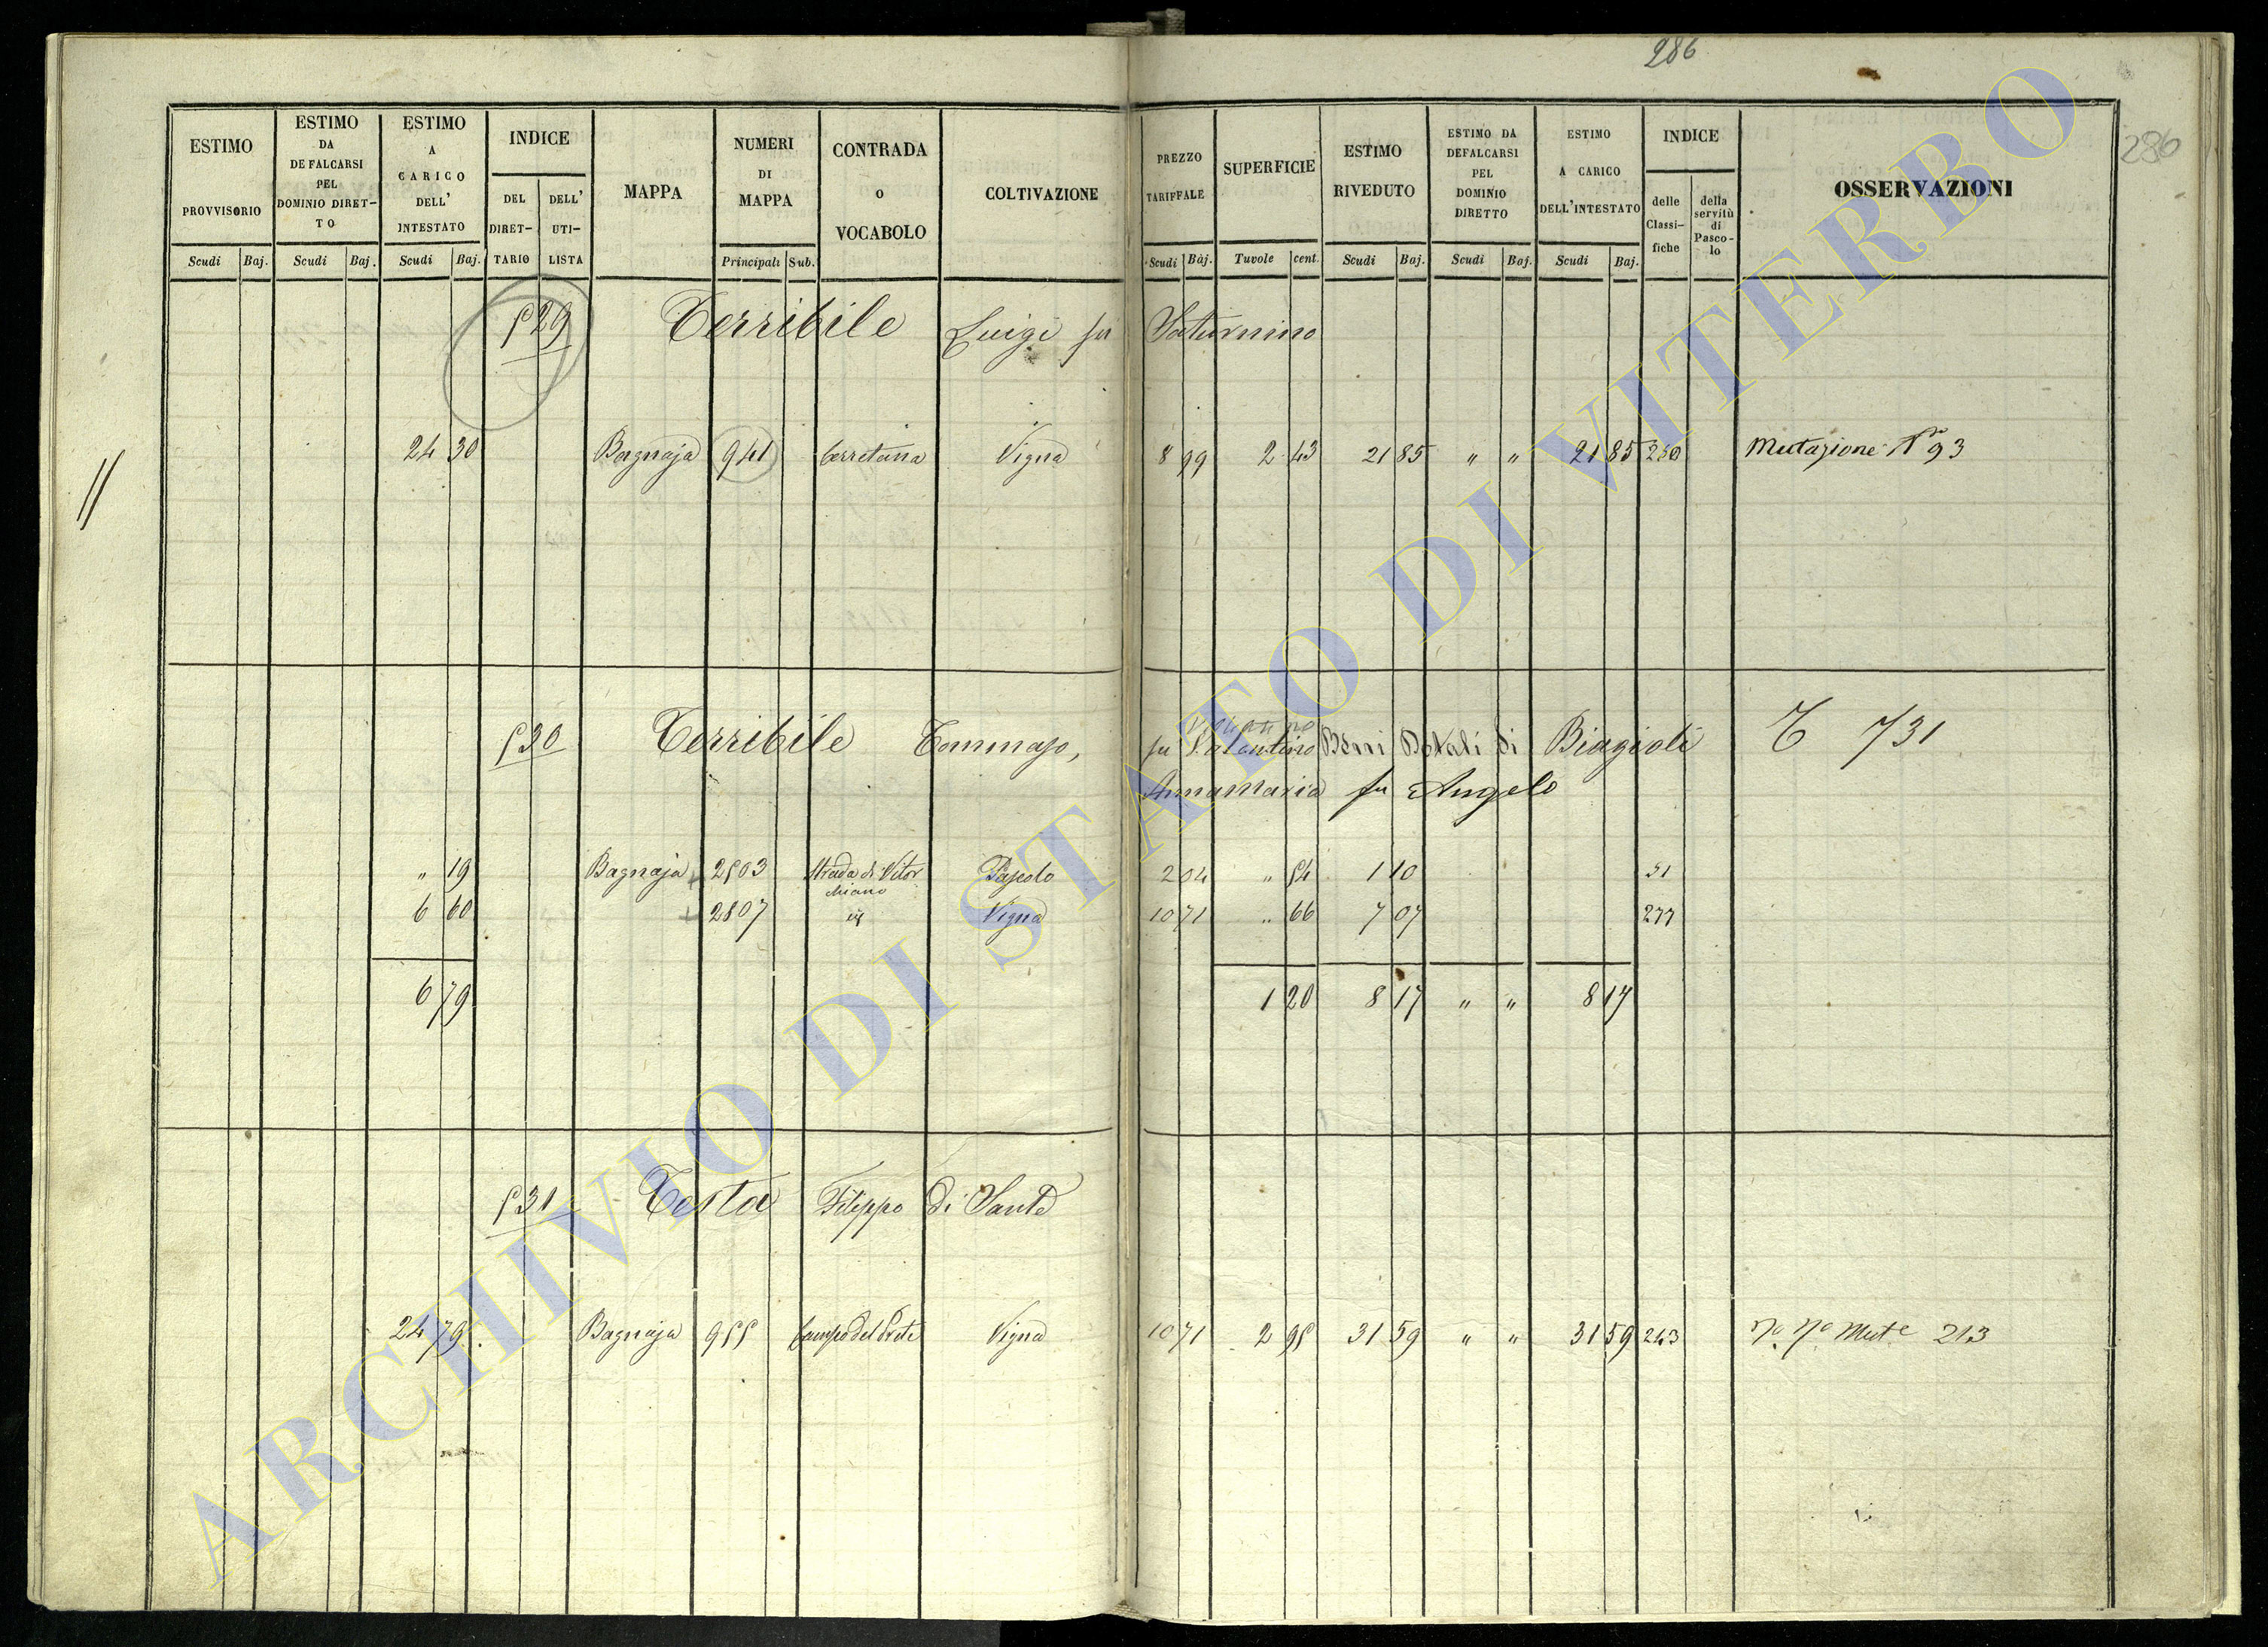 286
286
ESTIMO PROVVISORIO
ESTIMO DA DEFALCARSI PEL DOMINIO DIRETTO
ESTIMO A CARICO DELL' INTESTATO
INDICE
DEL DIRETTARIO
DELL' UTILISTA
MAPPA
NUMERI DI MAPPA
CONTRADA O VOCABOLO
COLTIVAZIONE
PREZZO TARIFFALE
SUPERFICIE
ESTIMO RIVEDUTO
ESTIMO DA DEFALCARSI PEL DOMINIO DIRETTO
ESTIMO A CARICO DELL'INTESTATO
INDICE
delle Classifiche
della servitù di Pascolo
OSSERVAZIONI
Scudi Baj. Scudi Baj. Scudi Baj. Principali Sub. Scudi Baj. Tavole cent. Scudi Baj. Scudi Baj. Scudi Baj.
529 Terribile Luigi fu Saturnino
24 30 Bagnaja 941 Cerretana Vigna 8 99 2 43 21 85 " " 21 85 280 Mutazione N° 93
530 Terribile Tommaso, fu Valentino Beni Dotali di Biagioli T 731
Annamaria fu Angelo
" 19 Bagnaja 2503 Strada di Vitorchiano Pascolo 2 04 " 54 1 10 51
6 60 2807 id Vigna 10 71 " 66 7 07 277
6 79 1 20 8 17 " " 8 17
531 Testa Filippo di Sante
24 79 Bagnaja 955 Campo del Prete Vigna 10 71 2 95 31 59 " " 31 59 243 Mut.e 213
ARCHIVIO DI STATO DI VITERBO